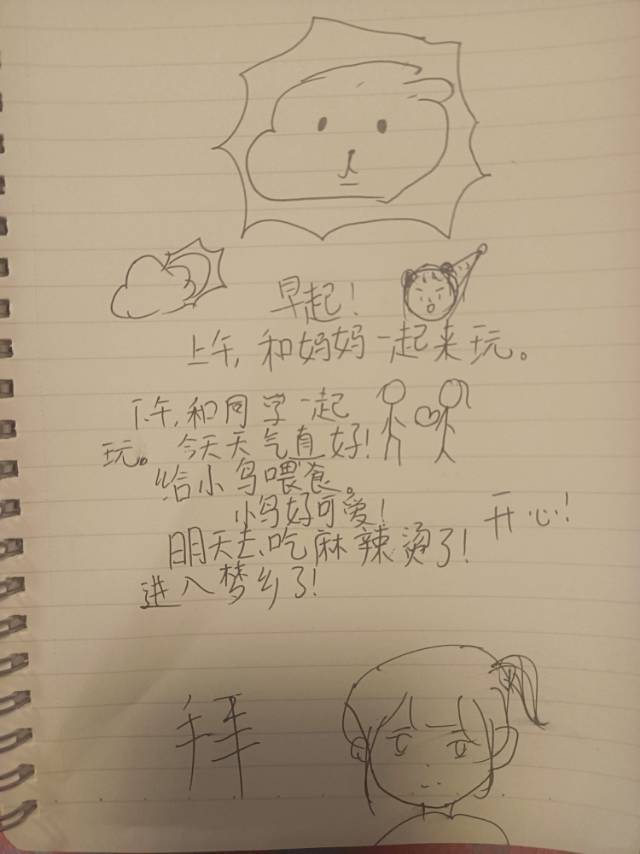 早起！
上午，和妈妈一起来玩。
下午，和同学一起
玩。今天天气真好！
给小鸟喂食。
小鸟好可爱！
开心！
明天去吃麻辣烫了！
进入梦乡了！
拜